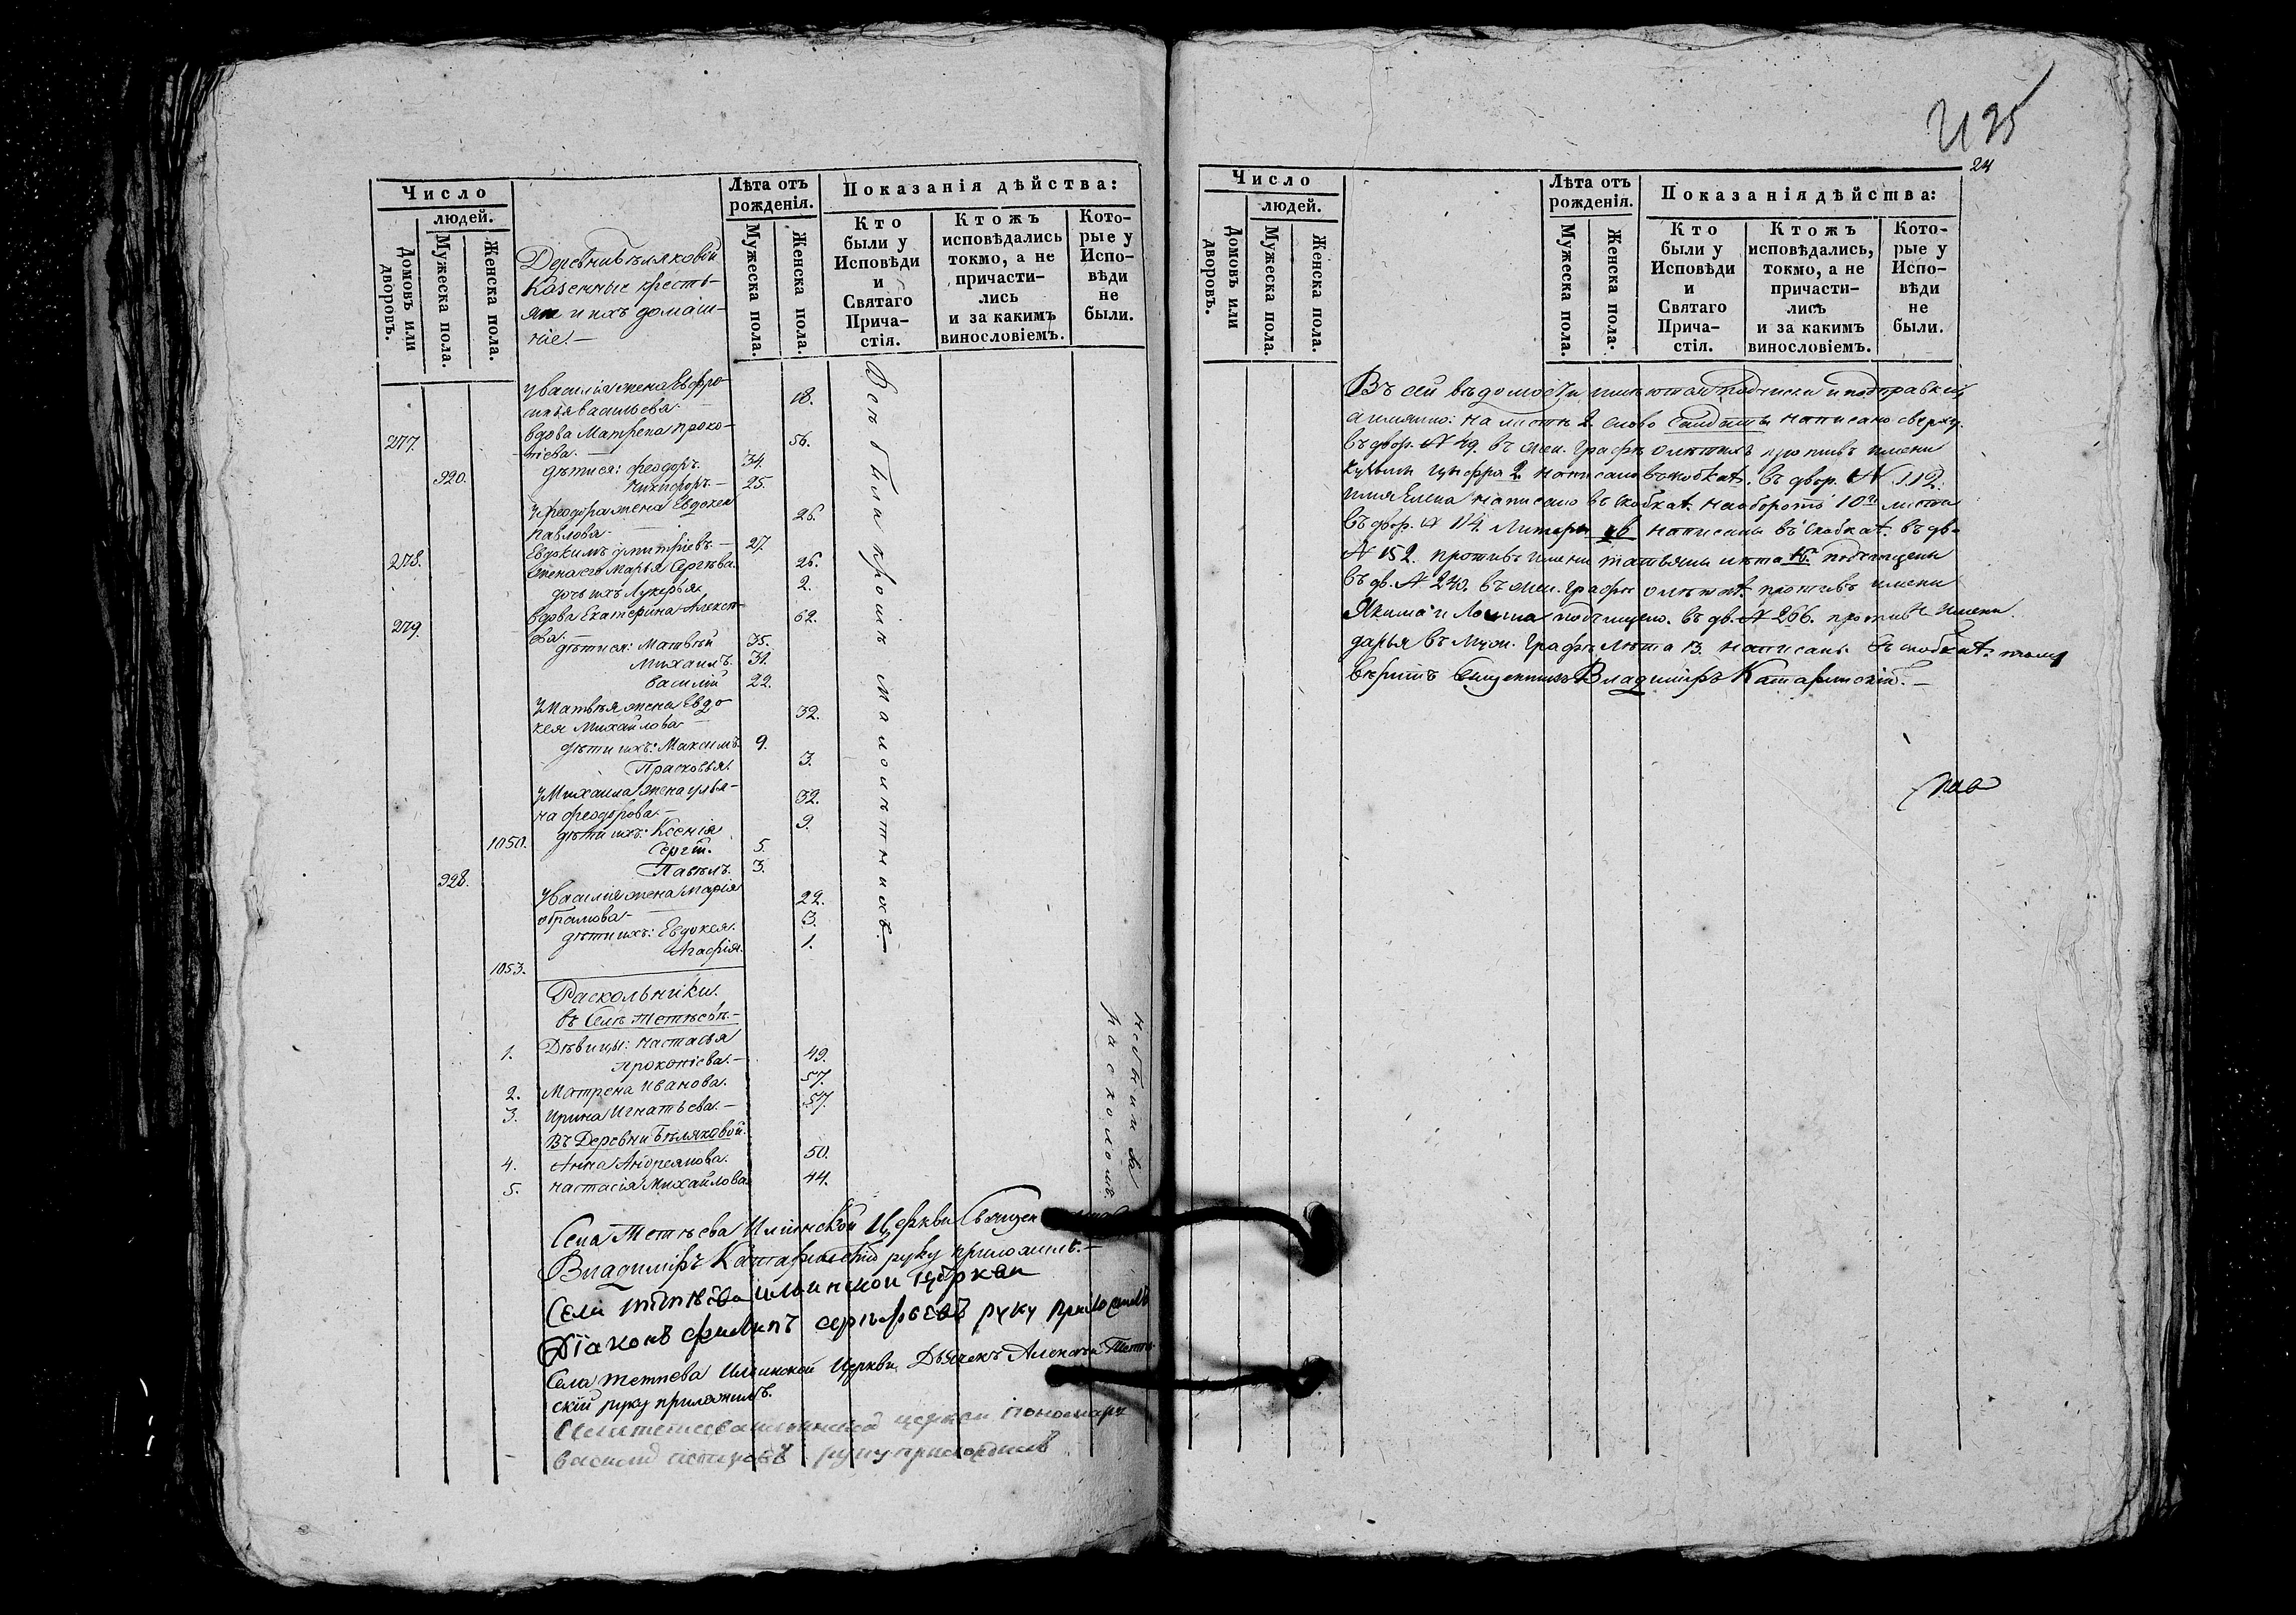 Число
людей.
Домовъ или дворовъ.
Мужеска пола.
Женска пола.
Деревни Бѣляковой
Казенные кресть-
яне и ихъ домаш-
ніе.
Лѣта отъ рожденія.
Мужеска пола.
Женска пола.
Показанія дѣйства:
Кто были у Исповѣди и Святаго Прича-стія.
Ктожъ исповѣдались токмо, а не причасти-лись и за какимъ винословіемъ.
Кото-рые у Испо-вѣди не были.
У Василія жена Евфро-
синья Васильева. 18.
277. вдова Матрена Проко-
піева. 56.
дѣти ея: Феодоръ. 34.
920. Никифоръ. 25.
У Феодора жена Евдокея
Павлова. 26.
278. Евдокимъ Дмитріевъ. 27.
Жена его Марья Сергѣева. 26.
дочь ихъ Лукерья 2.
279. вдова Екатерина Алексѣ-
ева. 62.
дѣти ея: Матвѣй 35.
Михаилъ. 31.
Василій 22.
У Матвѣя жена Евдо-
кея Михайлова 32.
дѣти ихъ: Максимъ. 9.
Прасковья. 3.
У Михаила жена Улья-
на Феодорова. 32.
1050. дѣти ихъ: Ксенія 9.
Сергій. 5.
928. Павелъ. 3.
У Василія жена Марія
Абрамова 22.
дѣти ихъ: Евдокея. 3.
1053. Агафія. 1.
Всѣ были кромѣ малолѣтнихъ.
Раскольники.
въ Селѣ
1. Дѣвицы: Настасья
Прокопіева. 49.
2. Матрена Иванова. 57.
3. Ирина Игнатьева. 57.
Въ Деревни Бѣляковой.
4. Анна Андреянова. 50.
5. Настасія Михайлова 44.
не были за
расколомъ.
Села Илiинской Церкви Священникъ
Владиміръ руку приложилъ.
Села Илиинской церкви
Діаконъ Филипъ руку приложилъ
Села Илиинской Церкви Дьячекъ Алексѣй
скій руку приложилъ.
Села церкви пономарь
Василій руку приложилъ
24
Число
людей.
Домовъ или дворовъ.
Мужеска пола.
Женска пола.
Лѣта отъ рожденія.
Мужеска пола.
Женска пола.
Показанія дѣйства:
Кто были у Исповѣди и Святаго Прича-стія.
Ктожъ исповѣдались, токмо, а не причасти-лись и за какимъ винословіемъ.
Кото-рые у Испо-вѣди не были.
Въ сей вѣдомости имѣются подчистки и поправки,
а имянно: На листѣ 2. слово написано сверху.
Въ двор. № 49. въ жен. Графѣ о лѣтахъ противъ имени
цыфра 2. написано въ скобкахъ. Въ двор. № 112.
имя Елена написано въ скобкахъ. На оборотѣ 10го листа
Въ двор. № 114. Литеры написаны въ скобкахъ. Въ дв.
№ 152. противъ имени Татьяны лѣта подчищены
Въ дв. № въ жен. Графѣ о лѣтахъ противъ имени
Якима и подчищено. Въ дв. № 266. противъ имени
Дарья въ муж. Графѣ лѣта 13. написаны въ скобкахъ. тому
вѣритъ Священникъ Владиміръ